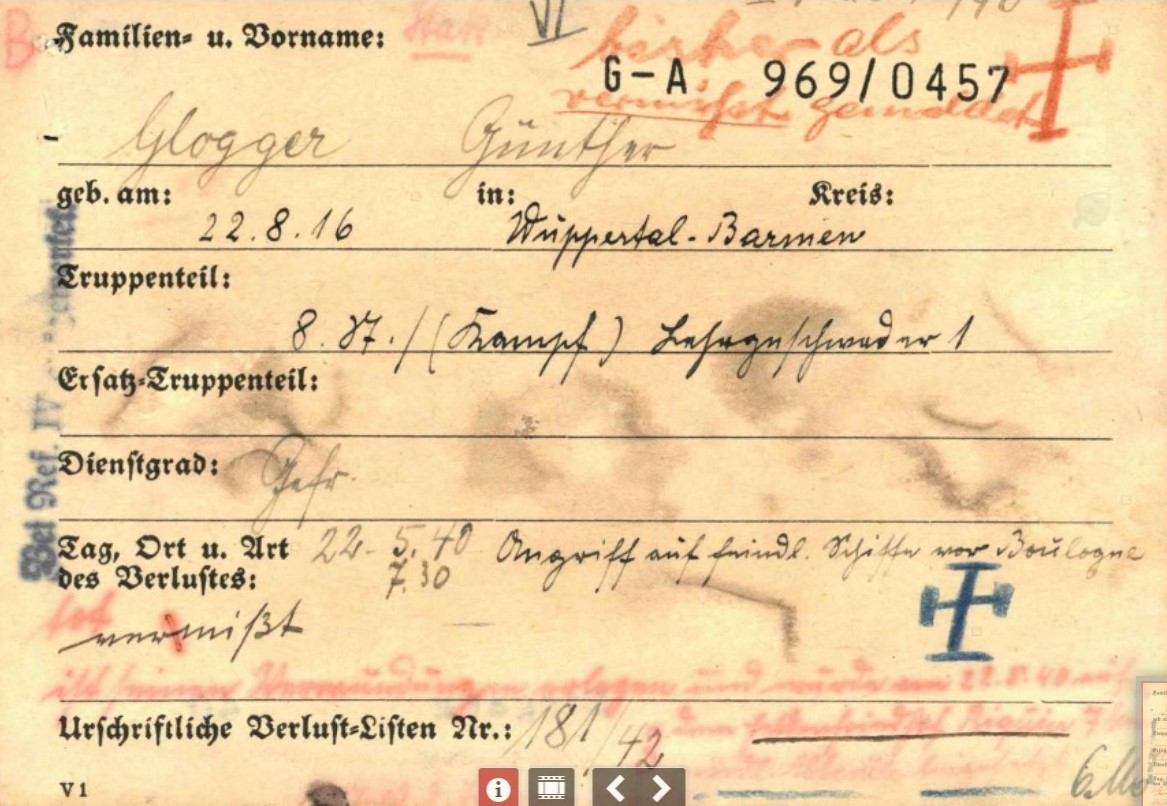 VI
bisher als
Familien- u. Vorname:
G-A 969/0457
vermißt gemeldet
Glogger Günther
geb. am: in: Kreis:
22.8.16 Wuppertal-Barmen
Truppenteil:
8. St./(Kampf) Lehrgeschwader 1
Ersatz-Truppenteil:
Dienstgrad: Gefr.
Tag, Ort u. Art 22. 5. 40 Angriff auf feindl. Schiffe vor Boulogne
des Verlustes: 7.30
tot
vermißt
ist seinen Verwundungen erlegen und wurde am 22.5.40 auf
Urschriftliche Verlust-Listen Nr.: 181/42
V1
Bei Ref. IV